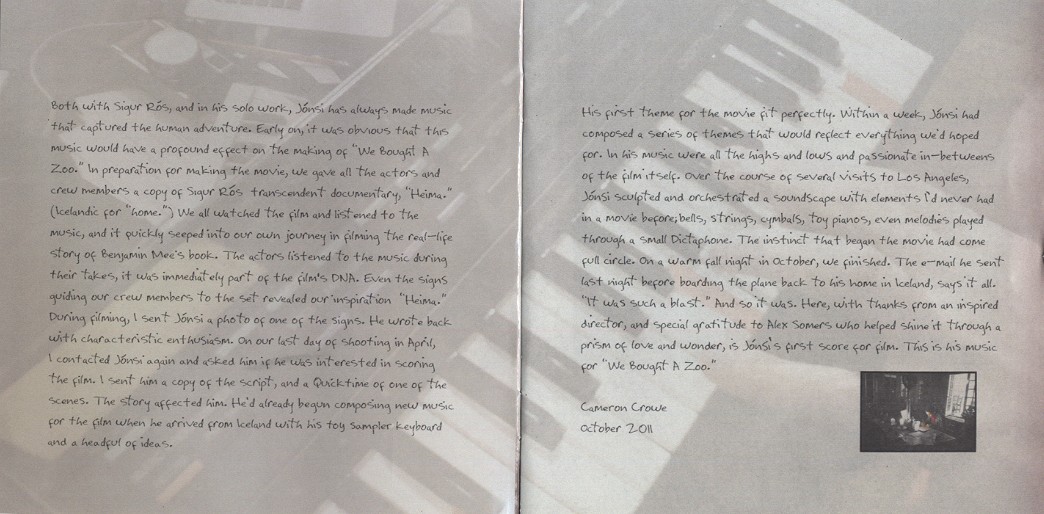 Both with Sigur Rós, and in his solo work, Jónsi has always made music
that captured the human adventure. Early on, it was obvious that this
music would have a profound effect on the making of "We Bought A
Zoo." In preparation for making the movie, we gave all the actors and
crew members a copy of Sigur Rós transcendent documentary, "Heima."
(Icelandic for "home.") We all watched the film and listened to the
music, and it quickly seeped into our own journey in filming the real-life
story of Benjamin Mee's book. The actors listened to the music during
their takes, it was immediately part of the film's DNA. Even the signs
guiding our crew members to the set revealed our inspiration "Heima."
During filming, I sent Jónsi a photo of one of the signs. He wrote back
with characteristic enthusiasm. On our last day of shooting in April,
I contacted Jónsi again and asked him if he was interested in scoring
the film. I sent him a copy of the script, and a Quicktime of one of the
scenes. The story affected him. He'd already begun composing new music
for the film when he arrived from Iceland with his toy sampler keyboard
and a headful of ideas.
His first theme for the movie fit perfectly. Within a week, Jónsi had
composed a series of themes that would reflect everything we'd hoped
for. In his music were all the highs and lows and passionate in-betweens
of the film itself. Over the course of several visits to Los Angeles,
Jónsi sculpted and orchestrated a soundscape with elements I'd never had
in a movie before; bells, strings, cymbals, toy pianos, even melodies played
through a small Dictaphone. The instinct that began the movie had come
full circle. On a warm fall night in October, we finished. The e-mail he sent
last night before boarding the plane back to his home in Iceland, says it all.
"It was such a blast." And so it was. Here, with thanks from an inspired
director, and special gratitude to Alex Somers who helped shine it through a
prism of love and wonder, is Jónsi's first score for film. This is his music
for "We Bought A Zoo."
Cameron Crowe
October 2011